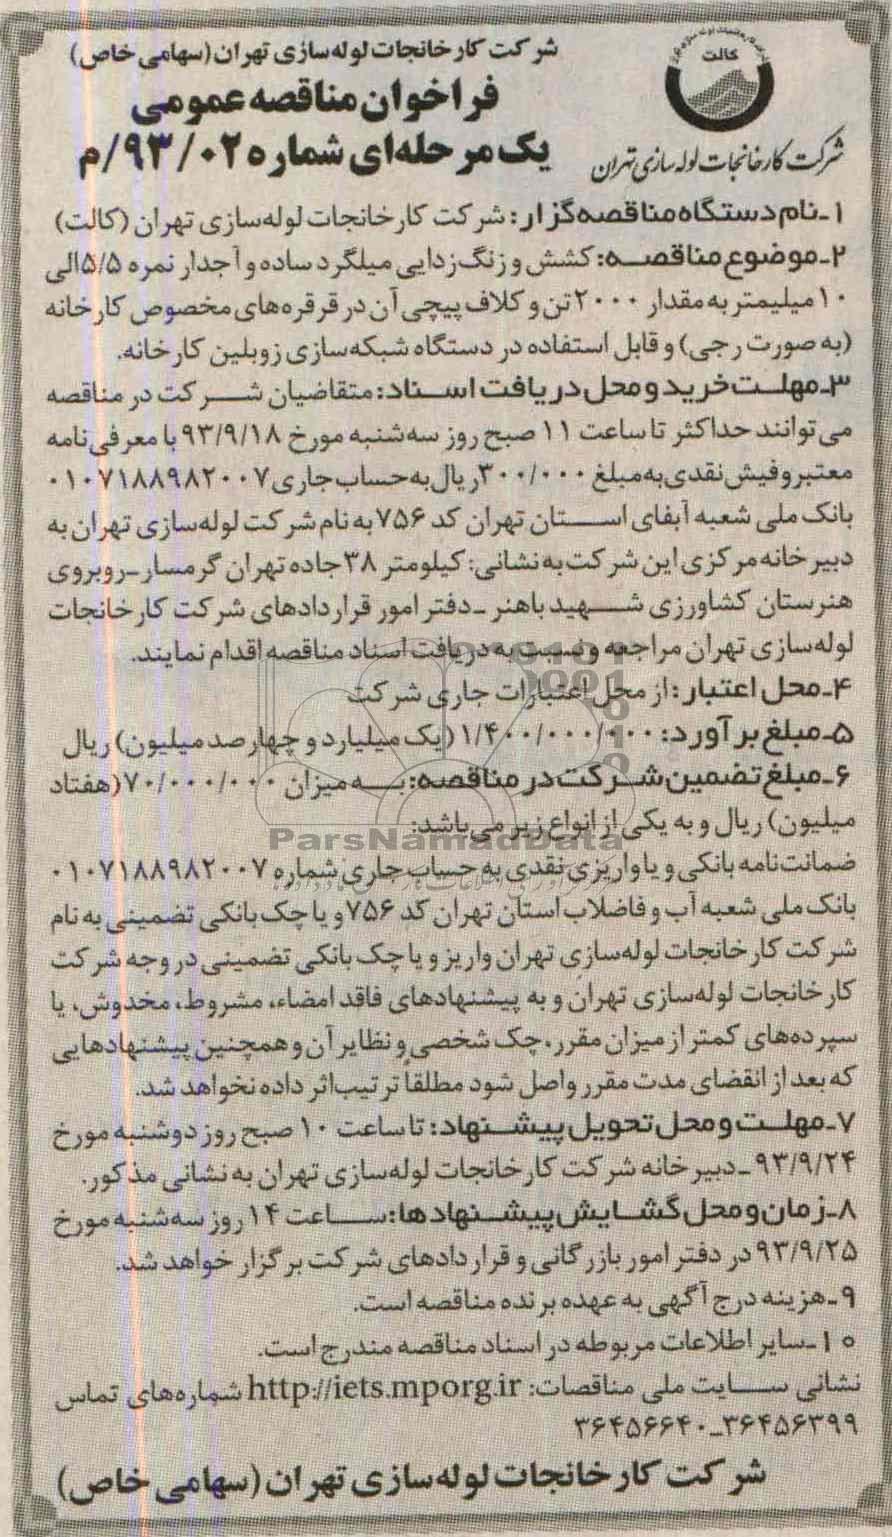 شرکت کارخانجات لوله‌سازی تهران (سهامی خاص)
کالت
فراخوان مناقصه عمومی
یک مرحله‌ای شماره ۹۳/۰۲/م
شرکت کارخانجات لوله‌سازی تهران
۱ـ نام دستگاه مناقصه‌گزار: شرکت کارخانجات لوله‌سازی تهران (کالت)
۲ـ موضوع مناقصه: کشش و زنگ‌زدایی میلگرد ساده و آجدار نمره ۵/۵ الی
۱۰ میلیمتر به مقدار ۲۰۰۰ تن و کلاف پیچی آن در قرقره‌های مخصوص کارخانه
(به صورت رجی) و قابل استفاده در دستگاه شبکه‌سازی زوبلین کارخانه.
۳ـ مهلت خرید و محل دریافت اسناد: متقاضیان شرکت در مناقصه
می‌توانند حداکثر تا ساعت ۱۱ صبح روز سه‌شنبه مورخ ۹۳/۹/۱۸ با معرفی‌نامه
معتبر و فیش نقدی به مبلغ ۳۰۰/۰۰۰ ریال به حساب جاری ۰۱۰۷۱۸۸۹۸۲۰۰۷
بانک ملی شعبه آبفای استان تهران کد ۷۵۶ به نام شرکت لوله‌سازی تهران به
دبیرخانه مرکزی این شرکت به نشانی: کیلومتر ۳۸ جاده تهران گرمسار ـ روبروی
هنرستان کشاورزی شهید باهنر ـ دفتر امور قراردادهای شرکت کارخانجات
لوله‌سازی تهران مراجعه و نسبت به دریافت اسناد مناقصه اقدام نمایند.
۴ـ محل اعتبار: از محل اعتبارات جاری شرکت
۵ـ مبلغ برآورد: ۱/۴۰۰/۰۰۰/۰۰۰ (یک میلیارد و چهارصد میلیون) ریال
۶ـ مبلغ تضمین شرکت در مناقصه: به میزان ۷۰/۰۰۰/۰۰۰ (هفتاد
میلیون) ریال و به یکی از انواع زیر می‌باشد:
ParsNamadData
ضمانت‌نامه بانکی و یا واریزی نقدی به حساب جاری شماره ۰۱۰۷۱۸۸۹۸۲۰۰۷
بانک ملی شعبه آب و فاضلاب استان تهران کد ۷۵۶ و یا چک بانکی تضمینی به نام
شرکت کارخانجات لوله‌سازی تهران واریز و یا چک بانکی تضمینی در وجه شرکت
کارخانجات لوله‌سازی تهران و به پیشنهادهای فاقد امضاء، مشروط، مخدوش، یا
سپرده‌های کمتر از میزان مقرر، چک شخصی و نظایر آن و همچنین پیشنهادهایی
که بعد از انقضای مدت مقرر واصل شود مطلقاً ترتیب‌اثر داده نخواهد شد.
۷ـ مهلت و محل تحویل پیشنهاد: تا ساعت ۱۰ صبح روز دوشنبه مورخ
۹۳/۹/۲۴ ـ دبیرخانه شرکت کارخانجات لوله‌سازی تهران به نشانی مذکور.
۸ـ زمان و محل گشایش پیشنهادها: ساعت ۱۴ روز سه‌شنبه مورخ
۹۳/۹/۲۵ در دفتر امور بازرگانی و قراردادهای شرکت برگزار خواهد شد.
۹ـ هزینه درج آگهی به عهده برنده مناقصه است.
۱۰ـ سایر اطلاعات مربوطه در اسناد مناقصه مندرج است.
نشانی سایت ملی مناقصات: http://iets.mporg.ir شماره‌های تماس
۳۶۴۵۶۶۴۰ـ۳۶۴۵۶۳۹۹
شرکت کارخانجات لوله‌سازی تهران (سهامی خاص)